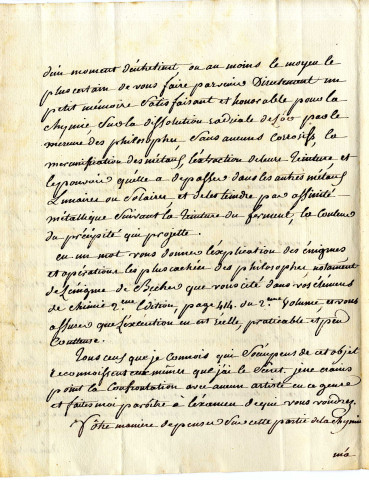 d'un moment d'entretient ou au moins le moyen le
plus certain de vous faire parvenir Directement un
petit mémoire Satisfaisant et honorable pour la
chymie, Sur la dissolution radicale de l'or par le
mercure des philosophes, Sans aucuns Corrosifs, la
mercurification des métaux, l'extraction de leurs Teinture et
le pouvoir qu'elle a de passer dans les autres métaux
Lunaires ou Solaires et de les teindre par affinité
métallique Suivant la Teinture du ferment, la Couleur
du précipité qui projette.
en un mot vous donner l'explication des énigmes
et opérations les plus cachées des philosophes notament
de L'énigme de Becher que vous cité dans vos élémens
de chimie 2.me Edition, page 414. du 2.me Volume et vous
assurer que l'exécution en est réelle, praticable et peu
Couteuse.
Tous ceux que je connois qui S'occupent de cet objet
reconnoissent eux même que j'ai le Secret. je ne crains
point la Confrontation avec aucun artiste en ce genre
et faites moi paroître à l'éxamen de qui vous voudrez.
Vôtre manière de penser Sur cette partie de la Chymie
m'a